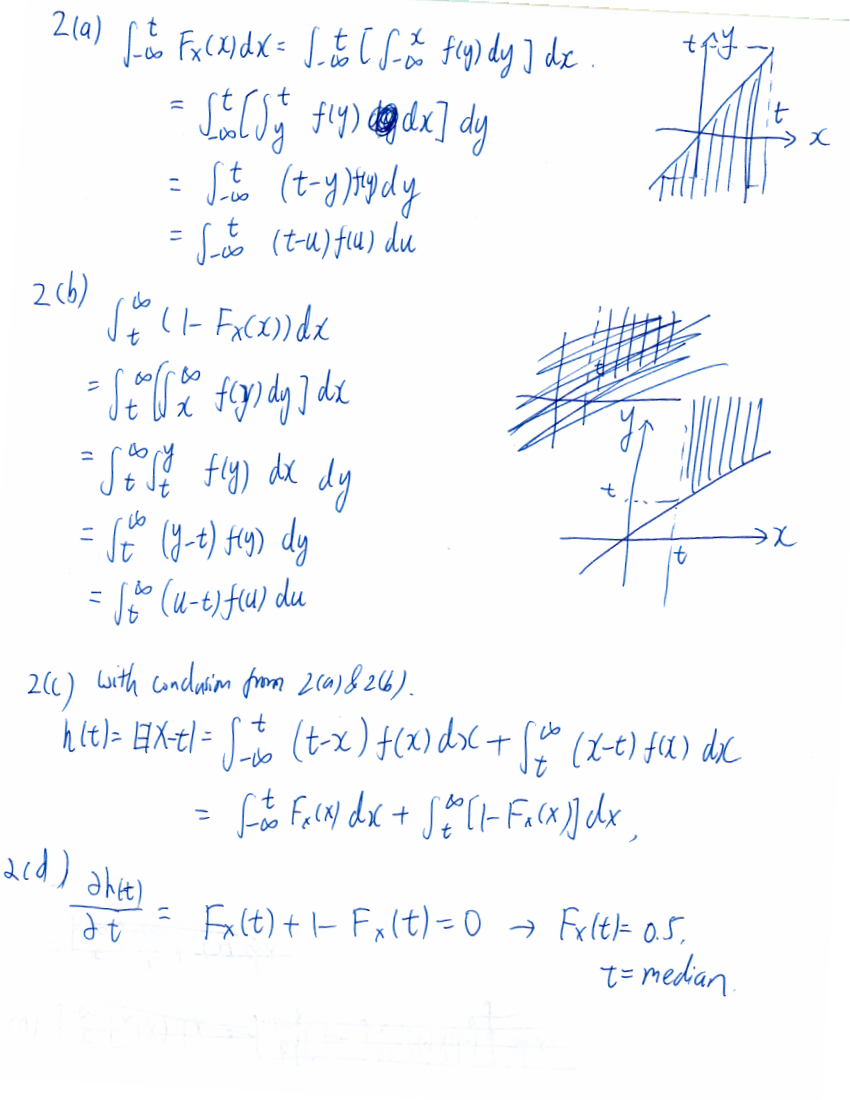 2(a) ∫_{-∞}^{t} F_X(x)dx = ∫_{-∞}^{t} [∫_{-∞}^{x} f(y)dy] dx.
= ∫_{-∞}^{t} [∫_{y}^{t} f(y) dx] dy
= ∫_{-∞}^{t} (t-y)f(y)dy
= ∫_{-∞}^{t} (t-u)f(u) du
t y
t
x
2(b)
∫_{t}^{∞} (1- F_X(x))dx
= ∫_{t}^{∞} [∫_{x}^{∞} f(y)dy] dx
= ∫_{t}^{∞} ∫_{t}^{y} f(y) dx dy
= ∫_{t}^{∞} (y-t) f(y) dy
= ∫_{t}^{∞} (u-t)f(u) du
y
t
x
t
2(c) with conclusion from 2(a)&2(b).
h(t)= E|X-t| = ∫_{-∞}^{t} (t-x) f(x)dx + ∫_{t}^{∞} (x-t) f(x) dx
= ∫_{-∞}^{t} F_X(x) dx + ∫_{t}^{∞} [1-F_X(x)]dx,
2(d) ∂h(t)/∂t = F_X(t) + 1- F_X(t) = 0 → F_X(t)= 0.5,
t = median.